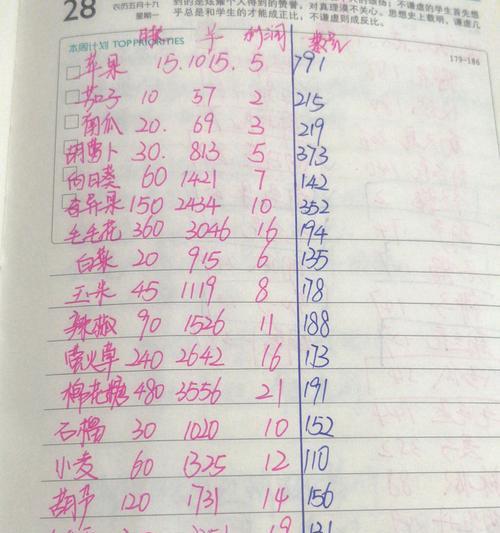 28 农历五月十九 星期一
乎总是和学生的才能成正比，不谦虚则成反比。
本周计划 TOP PRIORITIES 179-186
利润 数量
苹果 15. 1015. 5 791
茄子 10 57 2 215
南瓜 20. 69 3 219
胡萝卜 30. 813 5 373
向日葵 60 1421 7 142
奇异果 150 2434 10 352
毛毛花 360 3046 16 194
白菜 20 915 6 135
玉米 45 1119 8 178
辣椒 90 1526 11 188
喷火草 240 2642 16 173
棉花糖 480 3556 21 191
石榴 30 1020 10 152
小麦 60 1325 12 110
葫芦 120 1731 14 156